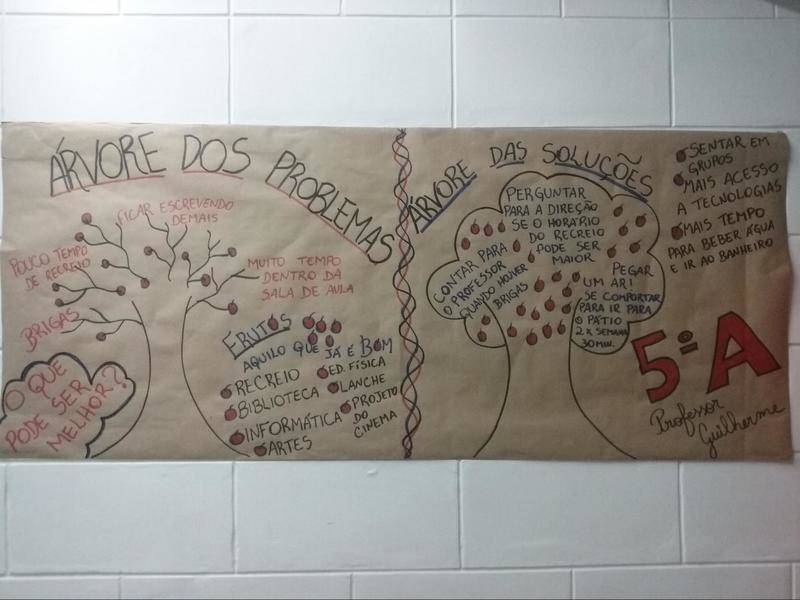 ÁRVORE DOS PROBLEMAS
FICAR ESCREVENDO
DEMAIS
POUCO TEMPO
DE RECREIO
MUITO TEMPO
DENTRO DA
SALA DE AULA
BRIGAS
O QUE
PODE SER
MELHOR?
FRUTOS
AQUILO QUE JÁ É BOM
RECREIO
BIBLIOTECA
INFORMÁTICA
ARTES
ED. FÍSICA
LANCHE
PROJETO
DO
CINEMA
ÁRVORE DAS SOLUÇÕES
PERGUNTAR
PARA A DIREÇÃO
SE O HORÁRIO
DO RECREIO
PODE SER
MAIOR
CONTAR PARA
O PROFESSOR
QUANDO HOUVER
BRIGAS
PEGAR
UM AR!
SE COMPORTAR
PARA IR PARA
O PÁTIO
2X SEMANA
30 MIN.
SENTAR EM
GRUPOS
MAIS ACESSO
A TECNOLOGIAS
MAIS TEMPO
PARA BEBER ÁGUA
E IR AO BANHEIRO
5º A
Professor
Guilherme